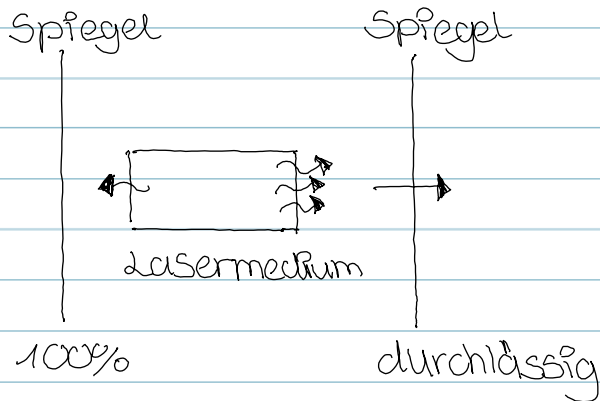 Spiegel Spiegel
Lasermedium
100% durchlässig